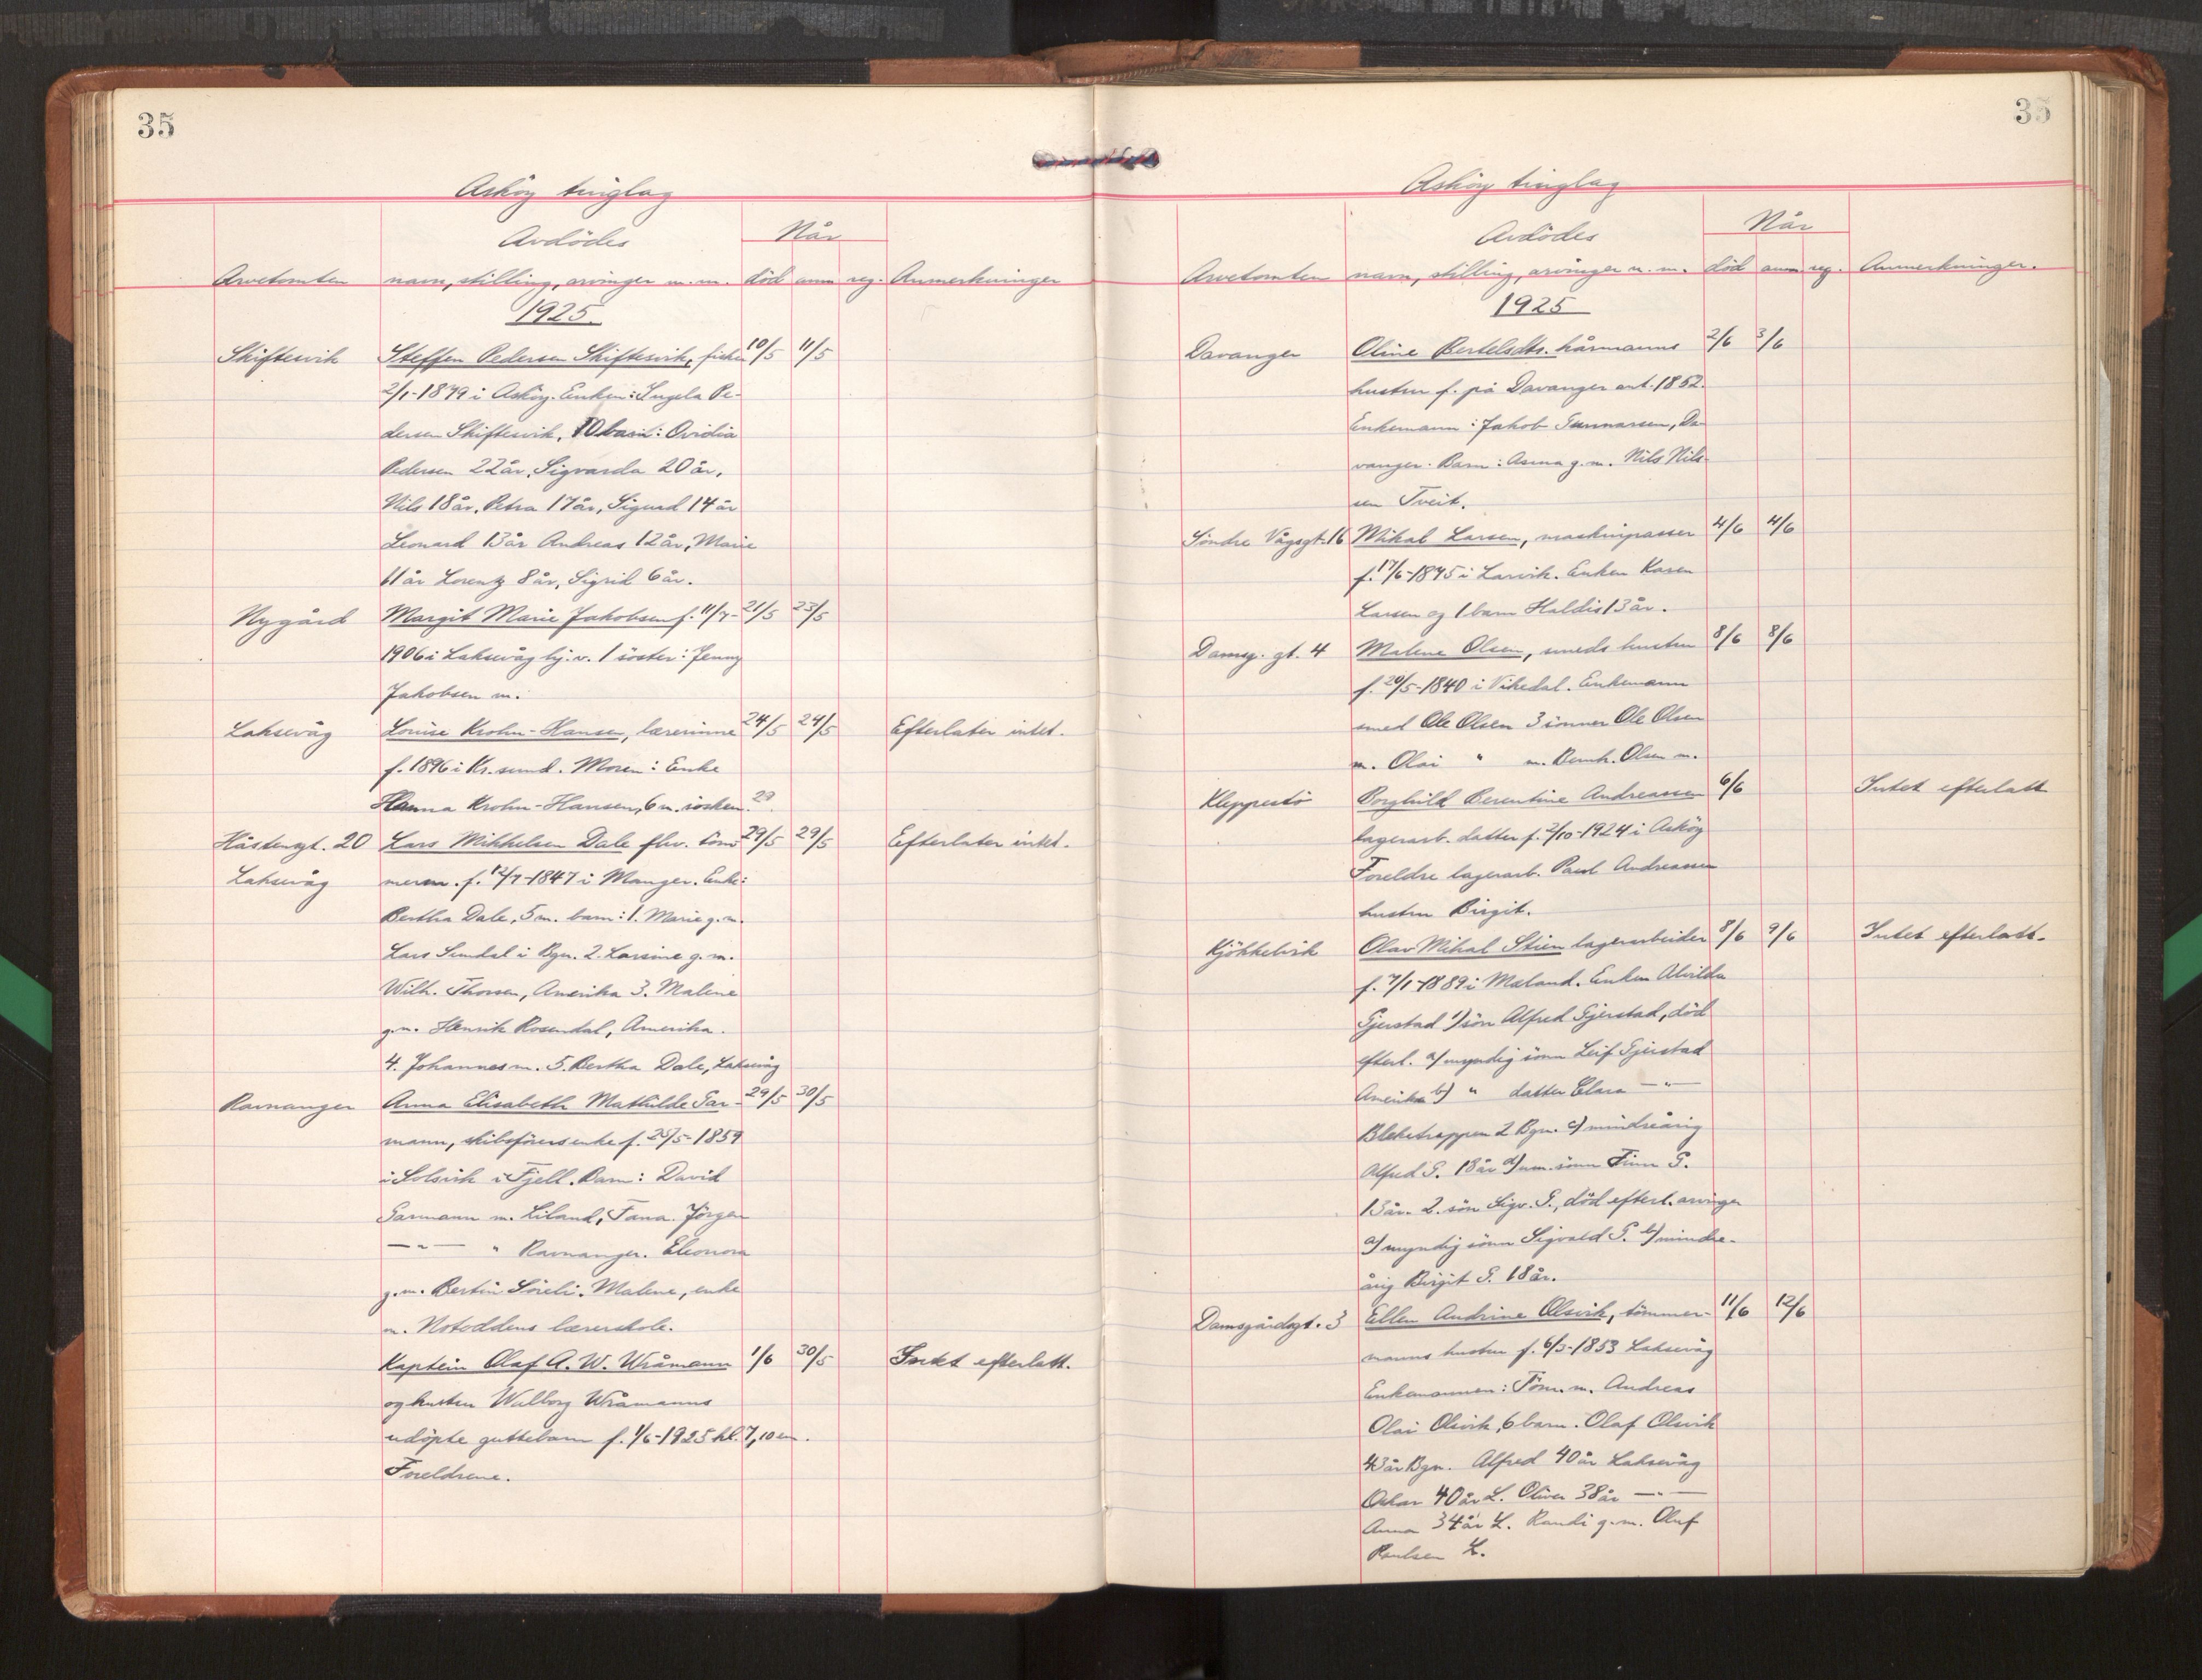 35
Asköy tinglag
Avdödes
Når
Arvetomten navn, stilling, arvinger m. m. död anm reg. Anmerkninger
1925
Skiftesvik Steffen Pedersen Skiftesvik, fisker 10/5 11/5
2/1-1879 i Asköy. Enken: Ingela Pe-
dersen Skiftesvik, 10 barn: Ovidia
Pedersen 22 år, Sigvarda 20 år,
Nils 18 år, Petra 17 år, Sigurd 14 år
Leonard 13 år Andreas 12 år, Marie
11 år Lorentz 8 år, Sigrid 6 år.
Nygård Margit Marie Jakobsen f. 11/7- 21/5 23/5
1906 i Laksevåg hj. v. 1 söster: Jenny
Jakobsen m.
Laksevåg Louise Krohn-Hansen, lærerinne 24/5 24/5 Efterlater intet.
f. 1896 i Kr.sund. Moren: Enke
Hanna Krohn-Hansen, 6 m. sösken.
Håstensgt. 20 Lars Mikkelsen Dale flv. töm- 29/5 29/5 Efterlater intet.
Laksevåg merm. f. 12/7-1847 i Manger. Enke:
Bertha Dale, 5 m. barn: 1. Marie g.m.
Lars Sundal i Bgn. 2. Larsine g. m.
Wilh. Thorsen, Amerika 3. Malene
g.m. Henrik Rosendal, Amerika.
4. Johannes m. 5. Bertha Dale, Laksevåg
Ravnanger Anna Elisabeth Mathilde Gar- 29/5 30/5
mann, skibsförers enke f. 25/5-1859
i Solsvik i Fjell. Barn: David
Garmann m. Liland, Fana. Jörgen
—"— " Ravnanger. Eleonora
g.m. Bertin Söreli. Malene, enke
m. Notoddens lærerskole.
Kaptein Olaf A. W. Wråmann 1/6 30/5 Intet efterlatt.
og hustru Walborg Wråmanns
udöpte guttebarn f. 1/6-1925 kl. 7,10 em.
Foreldrene.
35
Asköy tinglag
Avdödes
Når
Arvetomten navn, stilling, arvinger m. m. död anm reg. Anmerkninger.
1925
Davanger Oline Bertelsdtr. kårmanns 2/6 3/6
hustru f. på Davanger ant. 1852.
Enkemann: Jakob Gunnarsen, Da-
vanger. Barn: Asina g. m. Nils Nils-
sen Tveit.
Söndre Vågsgt. 16 Mikal Larsen, maskinpasser 4/6 4/6
f. 17/6-1875 i Larvik. Enken Karen
Larsen og 1 barn Haldis 13 år.
Damsg. gt. 4 Malene Olsen, smeds hustru 8/6 8/6
f. 20/5-1840 i Vikedal. Enkemann
smed Ole Olsen 3 sönner Ole Olsen
m. Olai " m. Bernh. Olsen m.
Kleppestö Borghild Berentine Andreassen 6/6 Intet efterlatt
lagerarb. datter f. 2/10-1924 i Asköy
Foreldre lagerarb. Paul Andreassen
hustru Birgit.
Kjökkelvik Olav Mikal Stien lagerarbeider 8/6 9/6 Intet efterlatt.
f. 7/1-1889 i Maland. Enken Alvilda
Gjerstad 1) sön Alfred Gjerstad, död
efterl. a) myndig sönn Leif Gjerstad
Amerika b) " datter Clara —"—
Bleketrappen 2 Bgn. c) mindreårig
Alfred G. 18 år d) um. sönn Finn G.
13 år. 2. sön Sigv. G., död efterl. arvinger
a) myndig sönn Sigvald G. b) mindre-
årig Birgit G. 18 år.
Damsgårdsgt. 3 Ellen Andrine Olsvik, tömmer- 11/6 12/6
manns hustru f. 6/3-1853 Laksevåg
Enkemannen: Töm.m. Andreas
Olai Olsvik, 6 barn. Olaf Olsvik
43 år Bgn. Alfred 40 år Laksevåg
Oskar 40 år L. Oliver 38 år —"—
Anna 34 år L. Randi g.m. Oluf
Paulsen L.